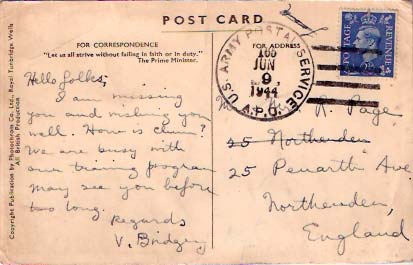 POST CARD
FOR CORRESPONDENCE
"Let us all strive without failing in faith or in duty."
The Prime Minister.
Hello folks,
I am missing
you and wishing you
well. How is
We are busy with
our training program
may see you before
too long.
Regards
V. Bridgery
Copyright Publication by Photochrom Co., Ltd., Royal Tunbridge Wells
All British Production
FOR ADDRESS
U.S. ARMY POSTAL SERVICE
A.P.O.
JUN
9
1944
POSTAGE
REVENUE
R. Page
25 Northenden
25 Penarth Ave
Northenden,
England